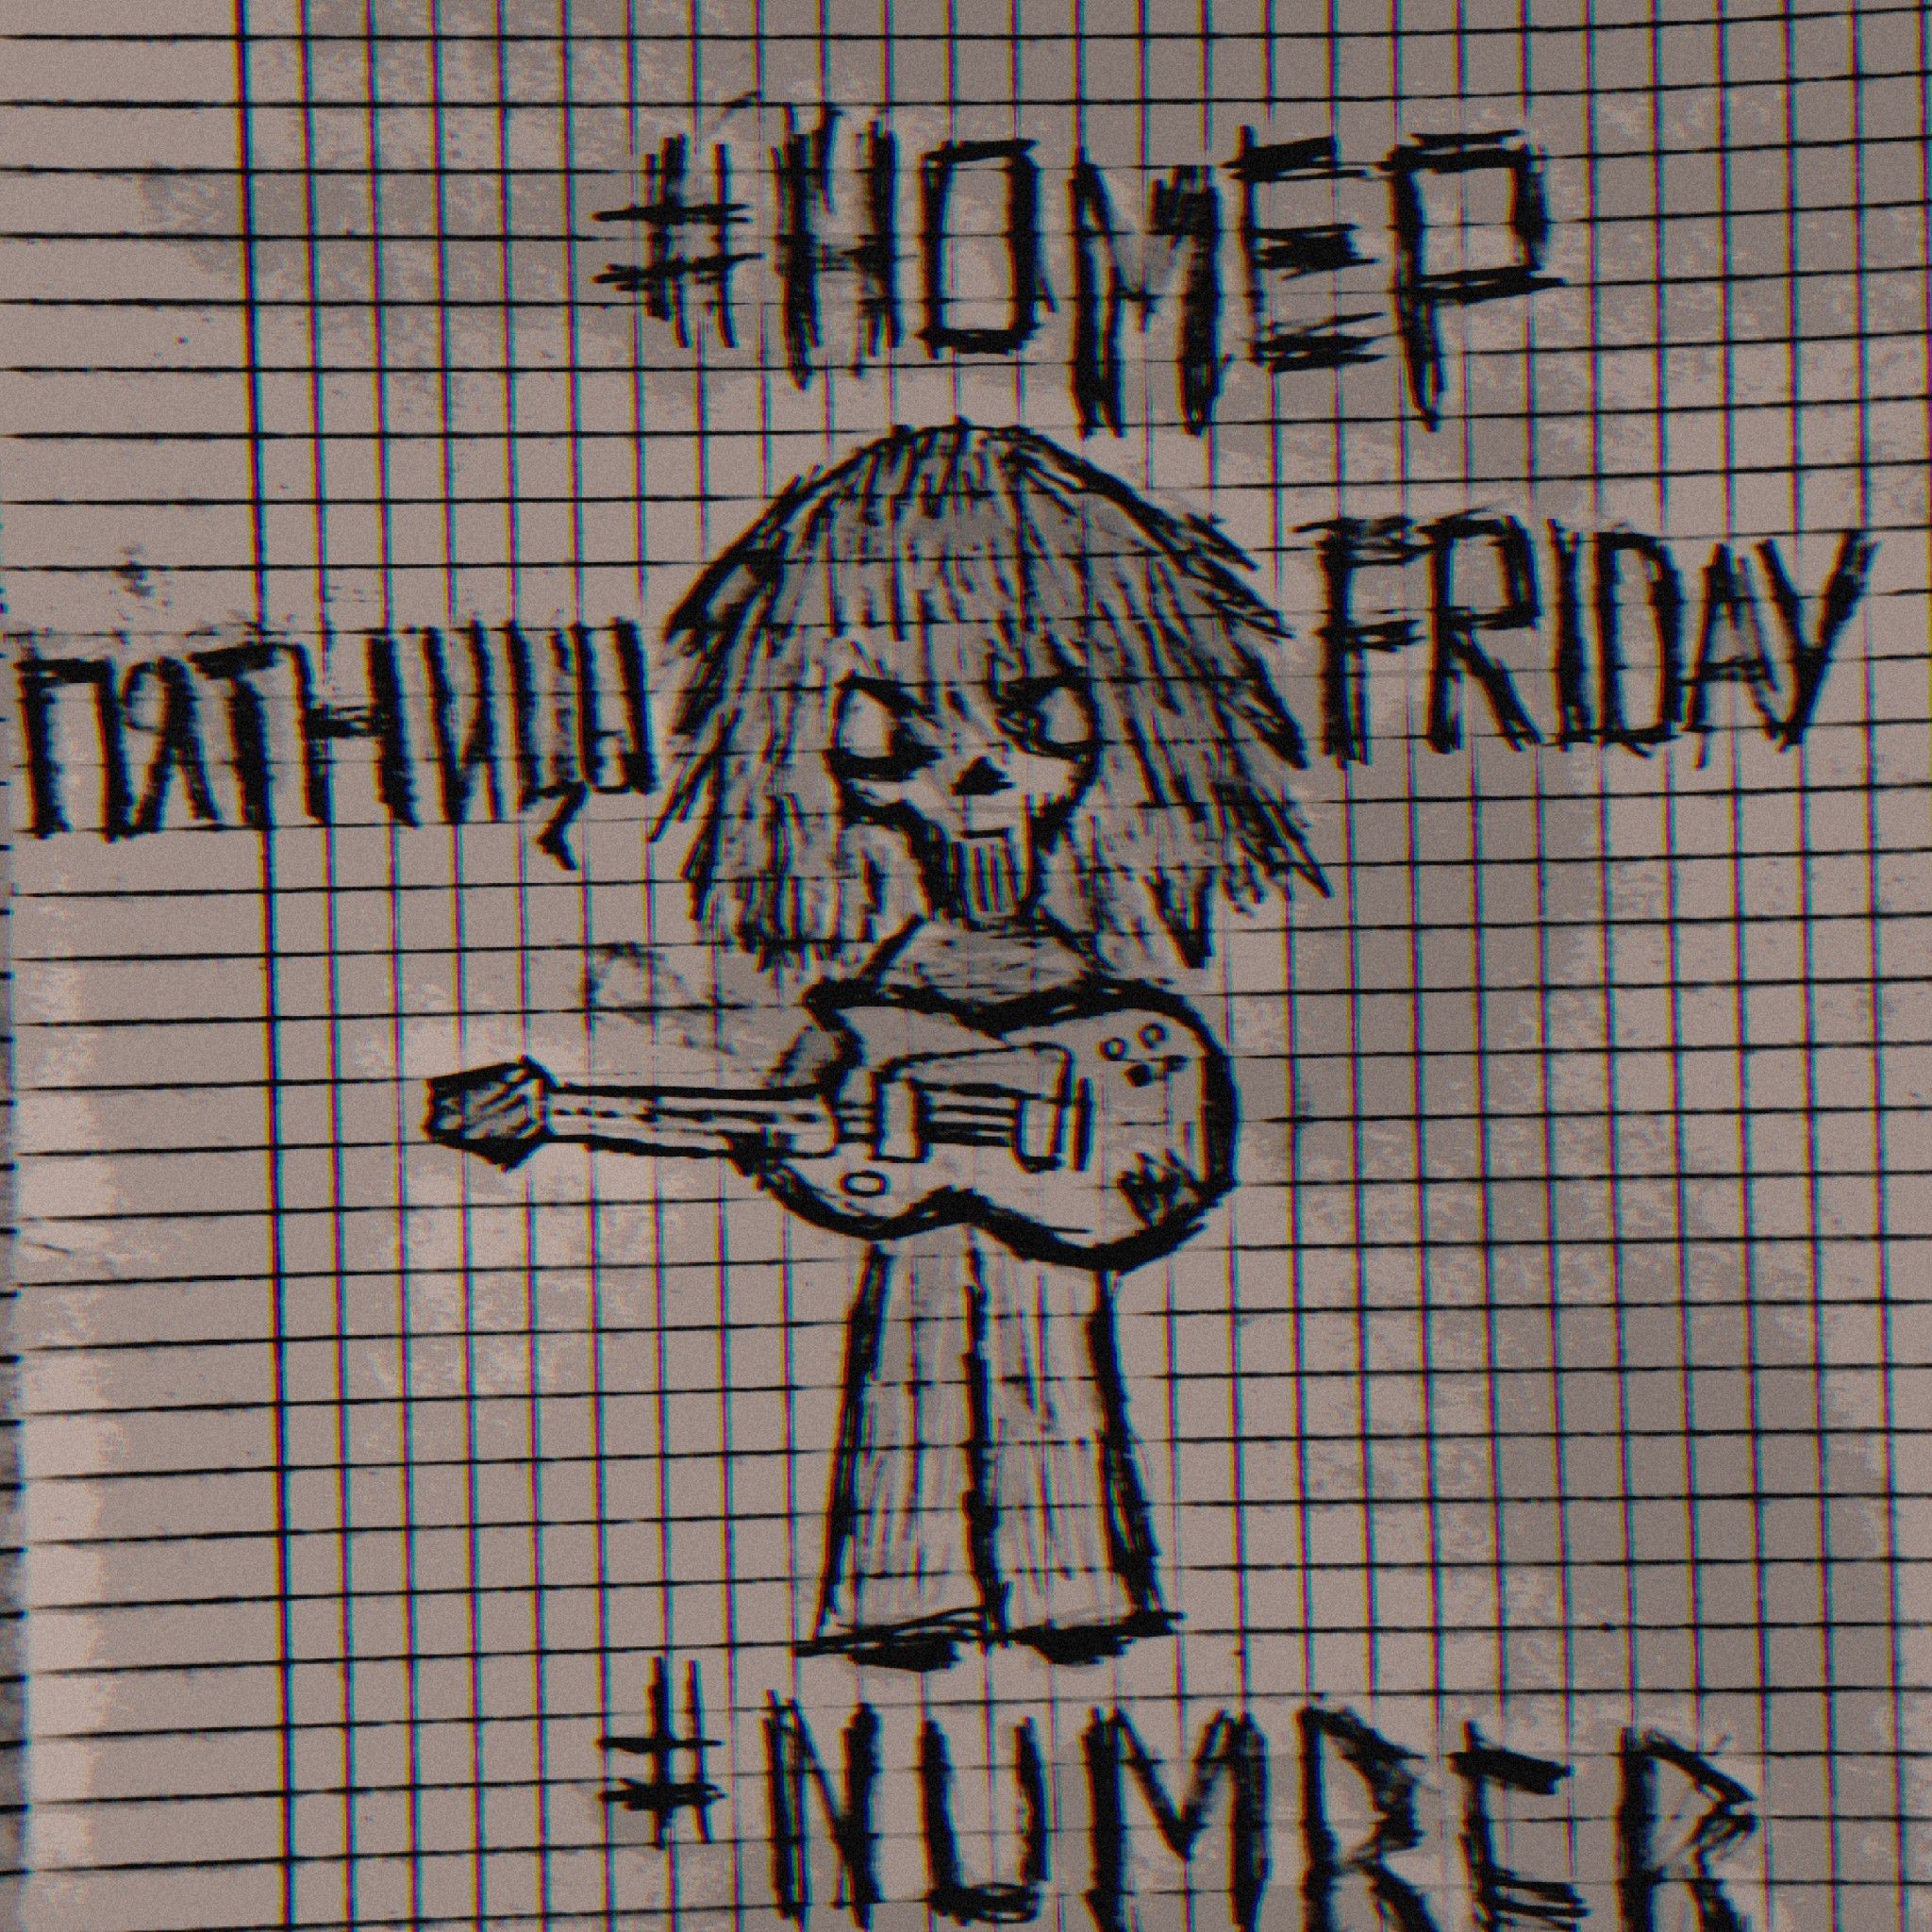 #НОМЕР
ПЯТНИЦЫ
FRIDAY
#NUMBER